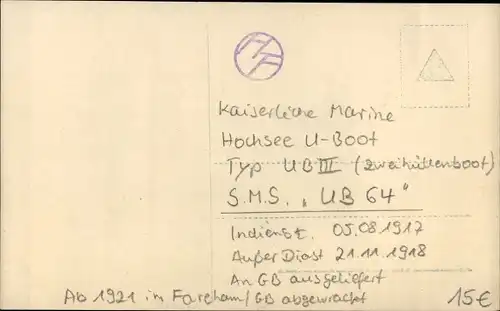 Kaiserliche Marine
Hochsee U-Boot
Typ UB III (Zweihüllenboot)
S.M.S. „UB 64“
Indienst. 05.08.1917
Außer Dienst 21.11.1918
An GB ausgeliefert
Ab 1921 in Fareham/GB abgewrackt
15€